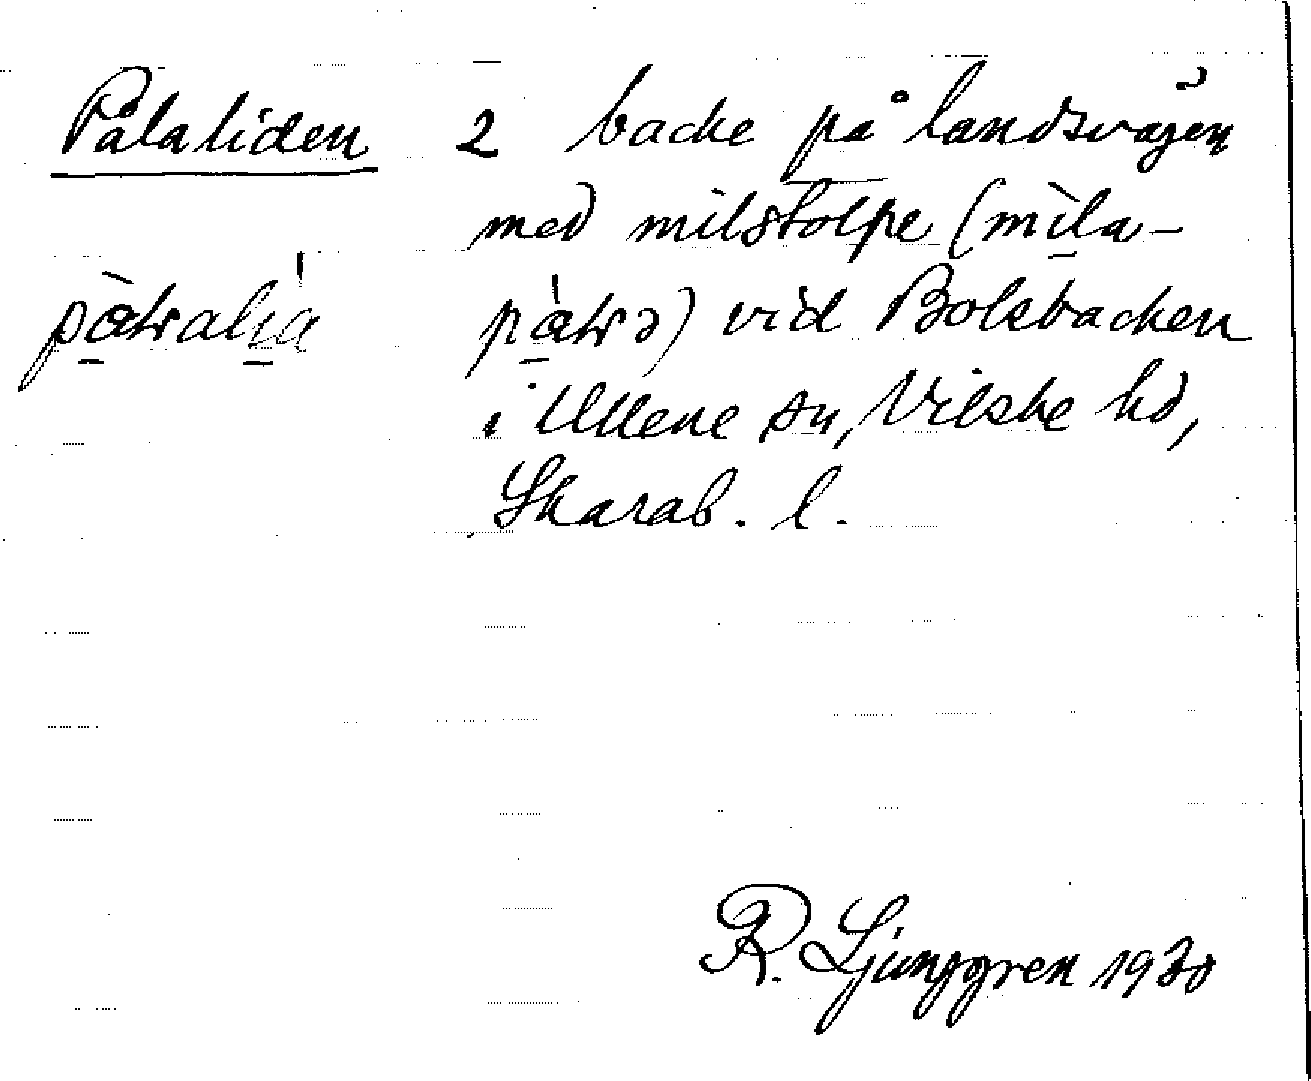 Pålaliden 2 backe på landsvägen
med milstolpe (mìla-
vid Bolsbacken
i Ullene sn, Vilske hd,
Skarab. l.
R. Ljunggren 1930